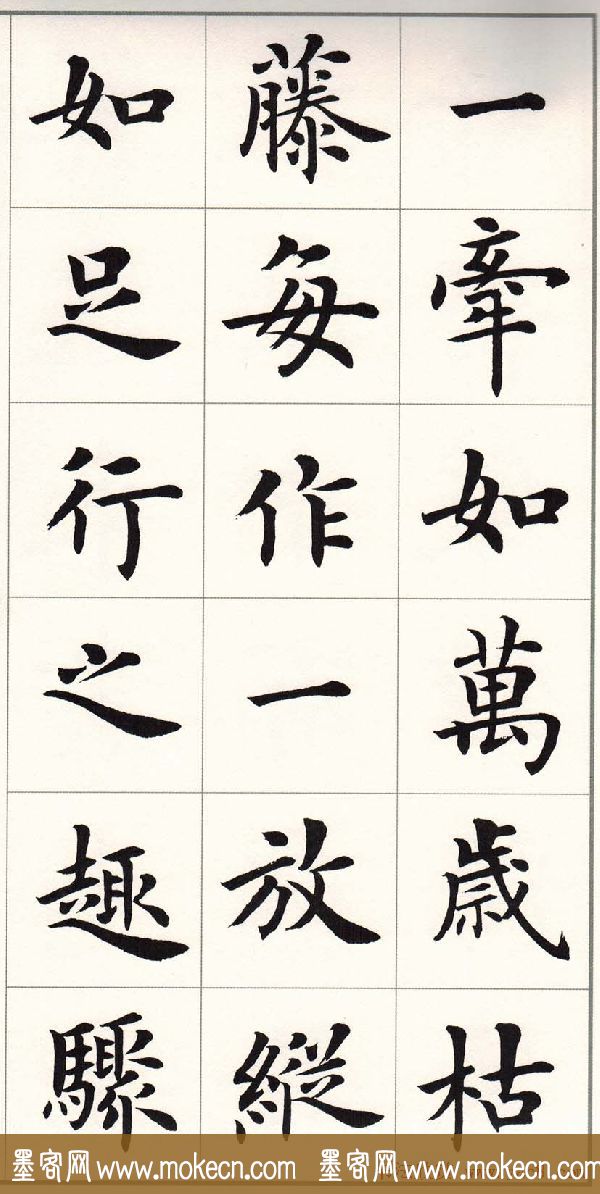 一牽如萬歲枯
藤每作一放縱
如足行之趣驟
墨客网 www.mokecn.com 墨客网 www.mokecn.com